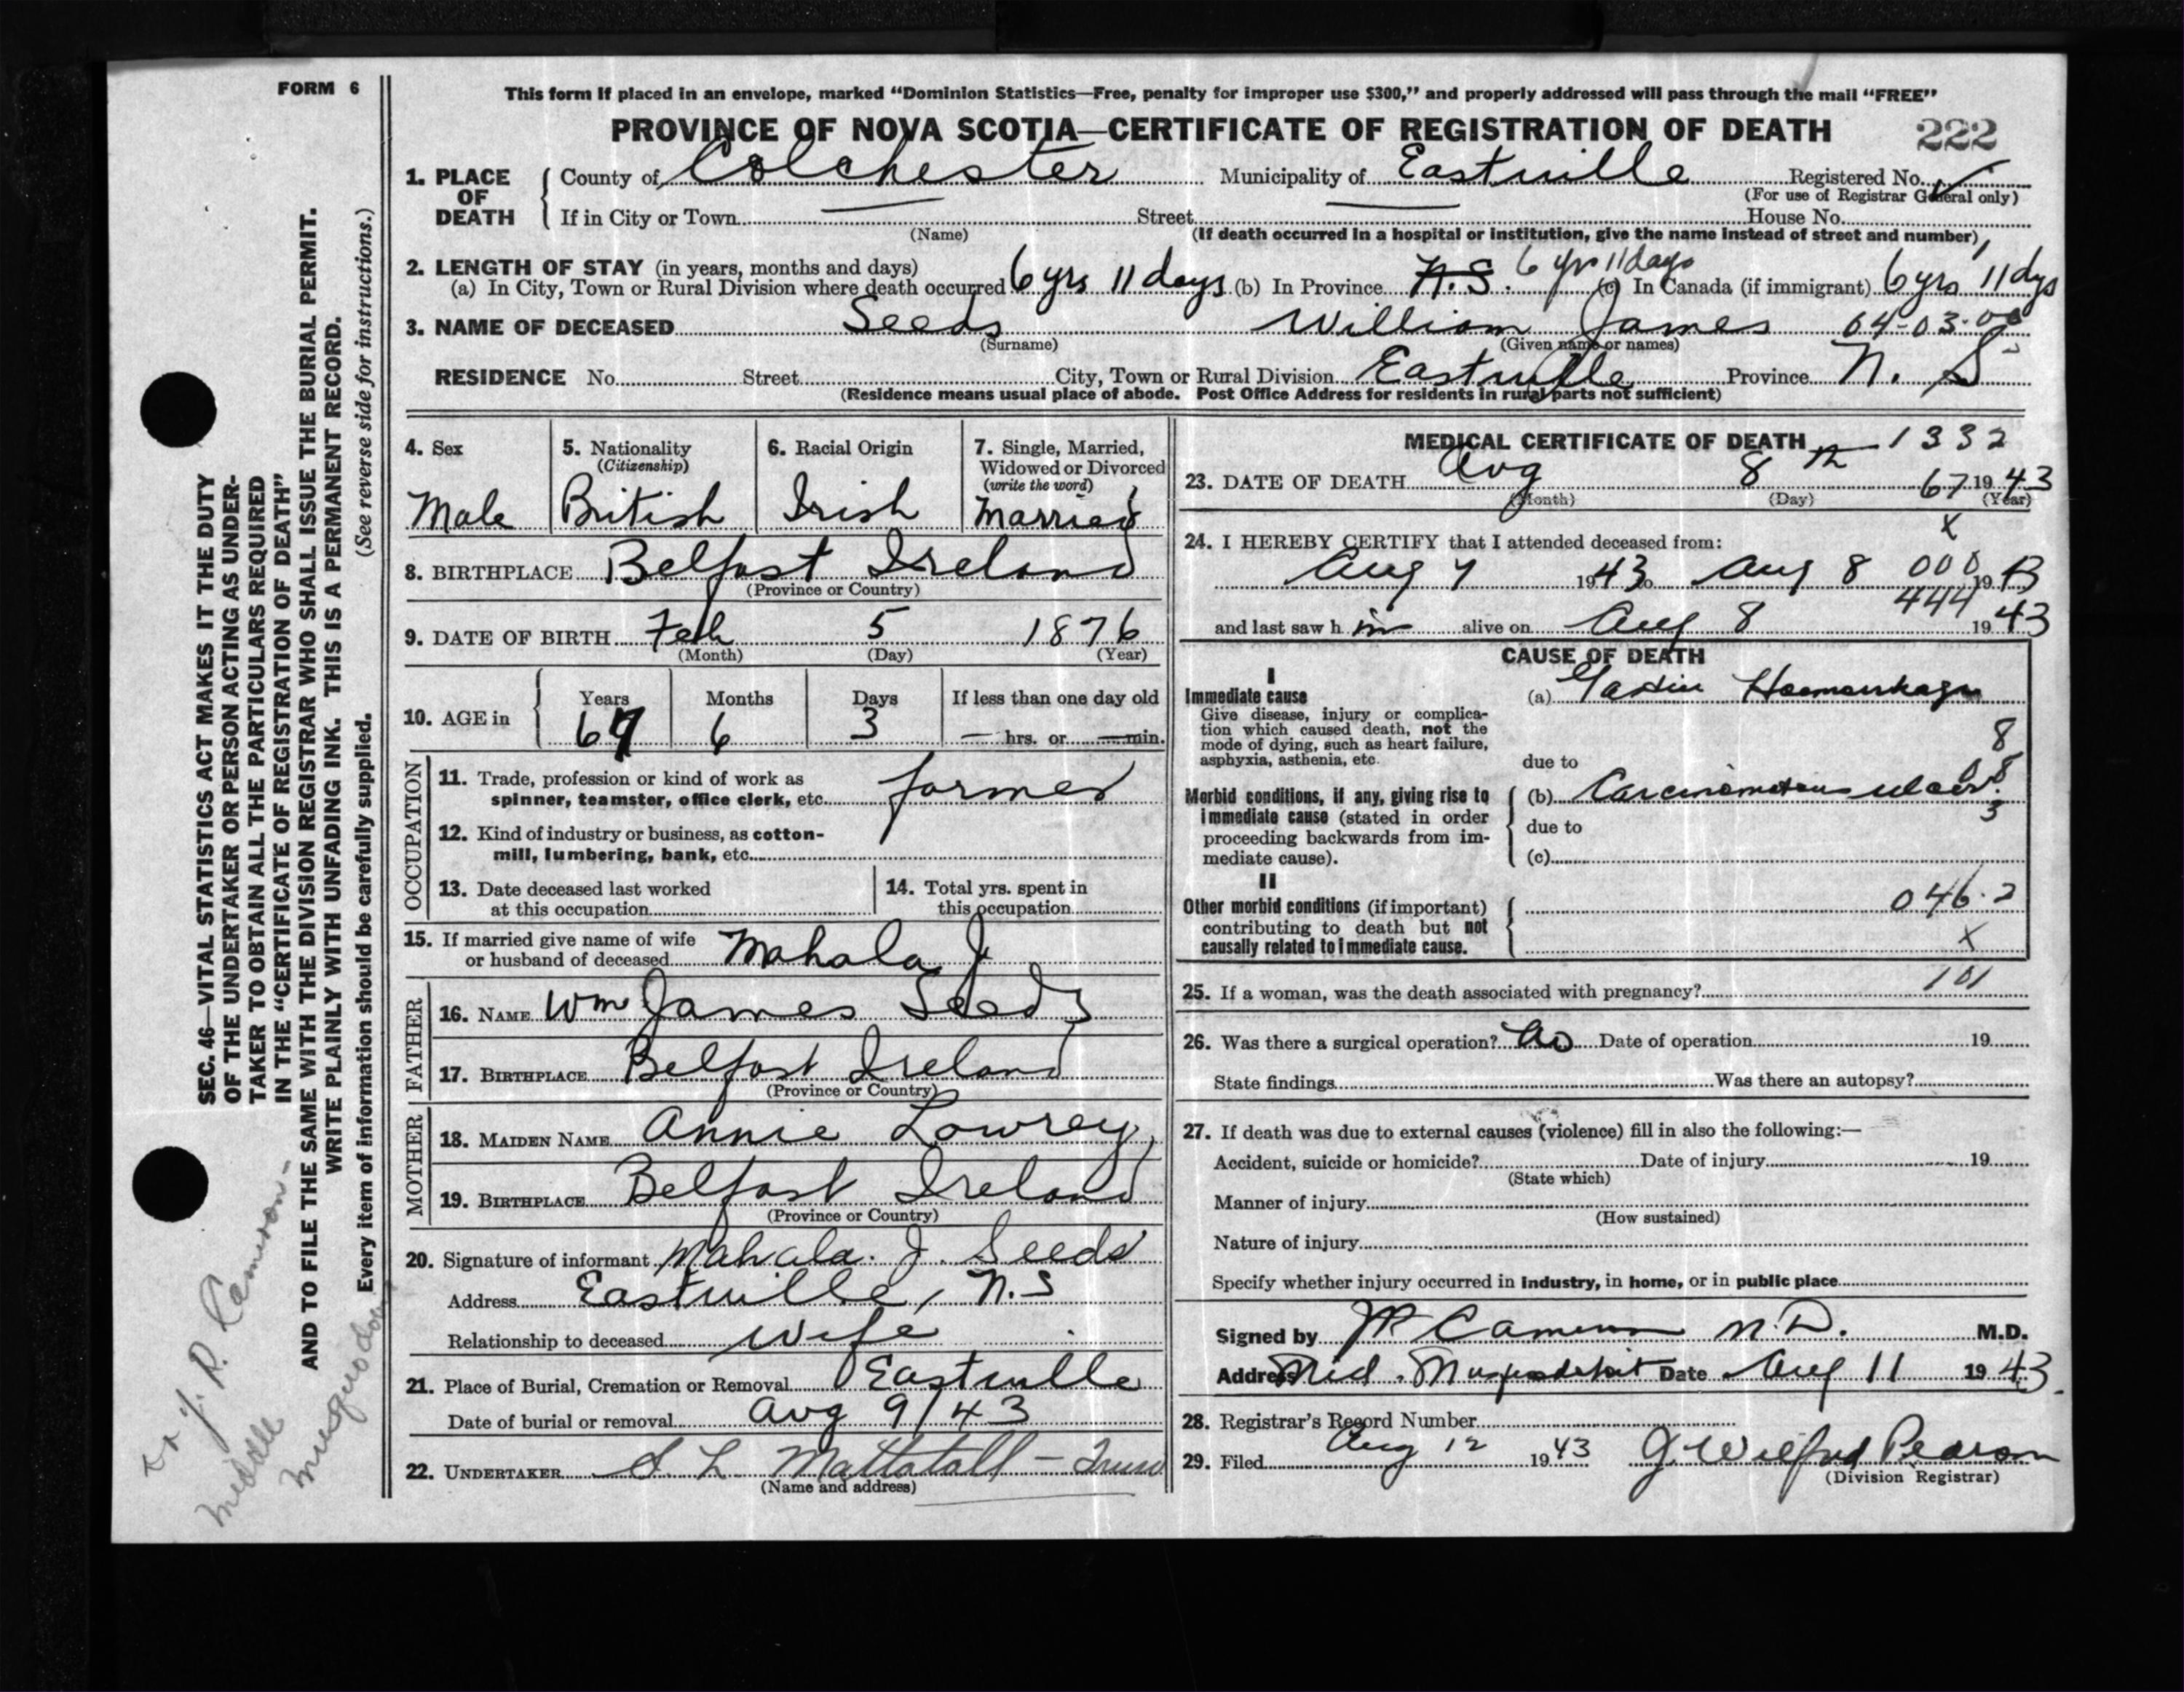 FORM 6
This form if placed in an envelope, marked "Dominion Statistics—Free, penalty for improper use $300," and properly addressed will pass through the mail "FREE"
PROVINCE OF NOVA SCOTIA—CERTIFICATE OF REGISTRATION OF DEATH 222
1. PLACE OF DEATH
County of Colchester Municipality of Eastville Registered No. ✓
(For use of Registrar General only)
If in City or Town — Street — House No.
(Name) (If death occurred in a hospital or institution, give the name instead of street and number)
2. LENGTH OF STAY (in years, months and days)
(a) In City, Town or Rural Division where death occurred 6 yrs 11 days (b) In Province N.S. 6 yrs 11 days (c) In Canada (if immigrant) 6 yrs 11 dys
3. NAME OF DECEASED Seeds William James 04-03-00
(Surname) (Given name or names)
RESIDENCE No. Street City, Town or Rural Division Eastville Province N. S
(Residence means usual place of abode. Post Office Address for residents in rural parts not sufficient)
4. Sex
Male
5. Nationality
(Citizenship)
British
6. Racial Origin
Irish
7. Single, Married,
Widowed or Divorced
(write the word)
Married
8. BIRTHPLACE Belfast Ireland
(Province or Country)
9. DATE OF BIRTH Feb 5 1876
(Month) (Day) (Year)
10. AGE in
Years Months Days If less than one day old
67 6 3 — hrs. or — min.
OCCUPATION
11. Trade, profession or kind of work as
spinner, teamster, office clerk, etc. farmer
12. Kind of industry or business, as cotton-
mill, lumbering, bank, etc.
13. Date deceased last worked
at this occupation
14. Total yrs. spent in
this occupation
15. If married give name of wife
or husband of deceased Mahala J
FATHER
16. NAME Wm James Seeds
17. BIRTHPLACE Belfast Ireland
(Province or Country)
MOTHER
18. MAIDEN NAME Annie Lowrey
19. BIRTHPLACE Belfast Ireland
(Province or Country)
20. Signature of informant Mahala. J. Seeds
Address Eastville, N.S
Relationship to deceased Wife
21. Place of Burial, Cremation or Removal Eastville
Date of burial or removal Aug 9/43
22. UNDERTAKER S. L Mattatall —
(Name and address)
MEDICAL CERTIFICATE OF DEATH 1332
23. DATE OF DEATH Aug 8th 67 1943
(Month) (Day) (Year)
x
24. I HEREBY CERTIFY that I attended deceased from:
Aug 7 1943 to Aug 8 000 19 43
444
and last saw h im alive on Aug 8 1943
CAUSE OF DEATH
I
Immediate cause
Give disease, injury or complica-
tion which caused death, not the
mode of dying, such as heart failure,
asphyxia, asthenia, etc.
(a) Gastric Haemorrhage
8
due to
Morbid conditions, if any, giving rise to
immediate cause (stated in order
proceeding backwards from im-
mediate cause).
(b) Carcinomatous ulcer.
3
due to
(c)
II
Other morbid conditions (if important)
contributing to death but not
causally related to immediate cause.
046.2
X
101
25. If a woman, was the death associated with pregnancy?
26. Was there a surgical operation? no Date of operation 19
State findings Was there an autopsy?
27. If death was due to external causes (violence) fill in also the following:—
Accident, suicide or homicide? Date of injury 19
(State which)
Manner of injury
(How sustained)
Nature of injury
Specify whether injury occurred in industry, in home, or in public place
Signed by JR Cameron M.D. M.D.
Address Mid. Musquodoboit Date Aug 11 1943.
28. Registrar's Record Number
29. Filed Aug 12 1943 J. Wilfred Pearson
(Division Registrar)
SEC. 46—VITAL STATISTICS ACT MAKES IT THE DUTY
OF THE UNDERTAKER OR PERSON ACTING AS UNDER-
TAKER TO OBTAIN ALL THE PARTICULARS REQUIRED
IN THE "CERTIFICATE OF REGISTRATION OF DEATH"
AND TO FILE THE SAME WITH THE DIVISION REGISTRAR WHO SHALL ISSUE THE BURIAL PERMIT.
WRITE PLAINLY WITH UNFADING INK. THIS IS A PERMANENT RECORD.
Every item of information should be carefully supplied. (See reverse side for instructions.)
Dr J. R. Cameron -
Middle